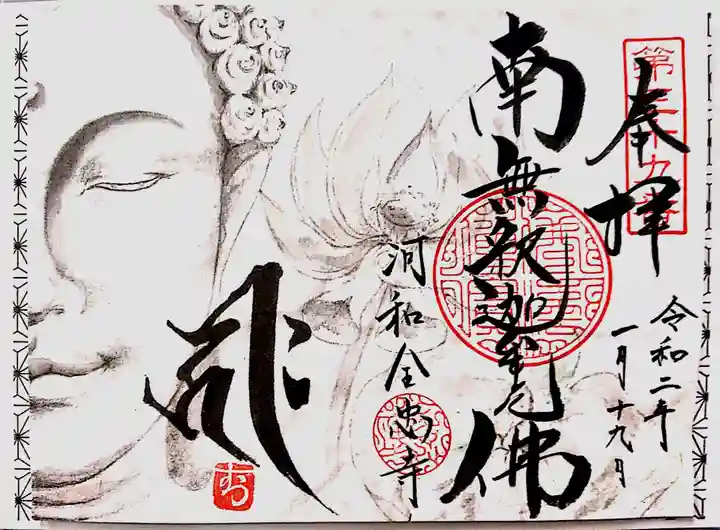 奉拝
第三十九番
令和二年
一月十九日
南無釈迦牟尼佛
河和全忠寺